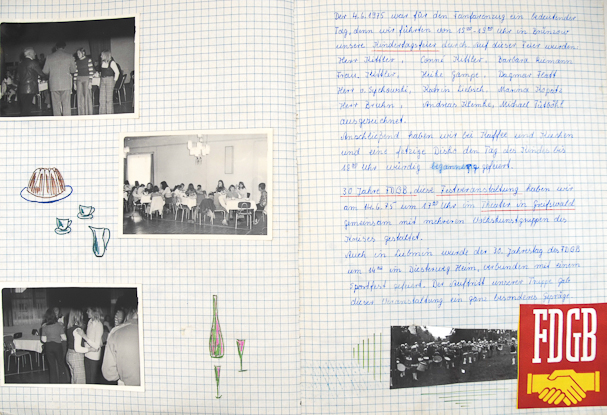 Der 4.6.1975 war für den Fanfarenzug ein bedeutender
Tag, denn wir führten von 15⁰⁰-18⁰⁰ Uhr in
unsere Kindertagsfeier durch. Auf dieser Feier wurden
Herr Kittler, Conni Kittler, Barbara Riemann
Frau Kittler, Heike Gampe, Dagmar
Herr u. Katrin Marina
Herr Bruhn, Andreas Klemke, Michael
ausgezeichnet.
Anschließend haben wir bei Kaffee und Kuchen
und eine fetzige Disko den Tag des Kindes bis
18⁰⁰ Uhr würdig gefeiert.
30 Jahre FDGB, diese Festveranstaltung haben wir
am 14.6.75 um 17⁰⁰ Uhr im Theater in Greifswald
gemeinsam mit mehreren Volkskunstgruppen des
Kreises gestaltet.
Auch in Lubmin wurde der 30. Jahrestag des FDGB
um 14⁰⁰ im Diesterweg Heim, verbunden mit einem
Sportfest gefeiert. Der Auftritt unserer Truppe gab
dieser Veranstaltung ein ganz besonderes Gepräge
FDGB